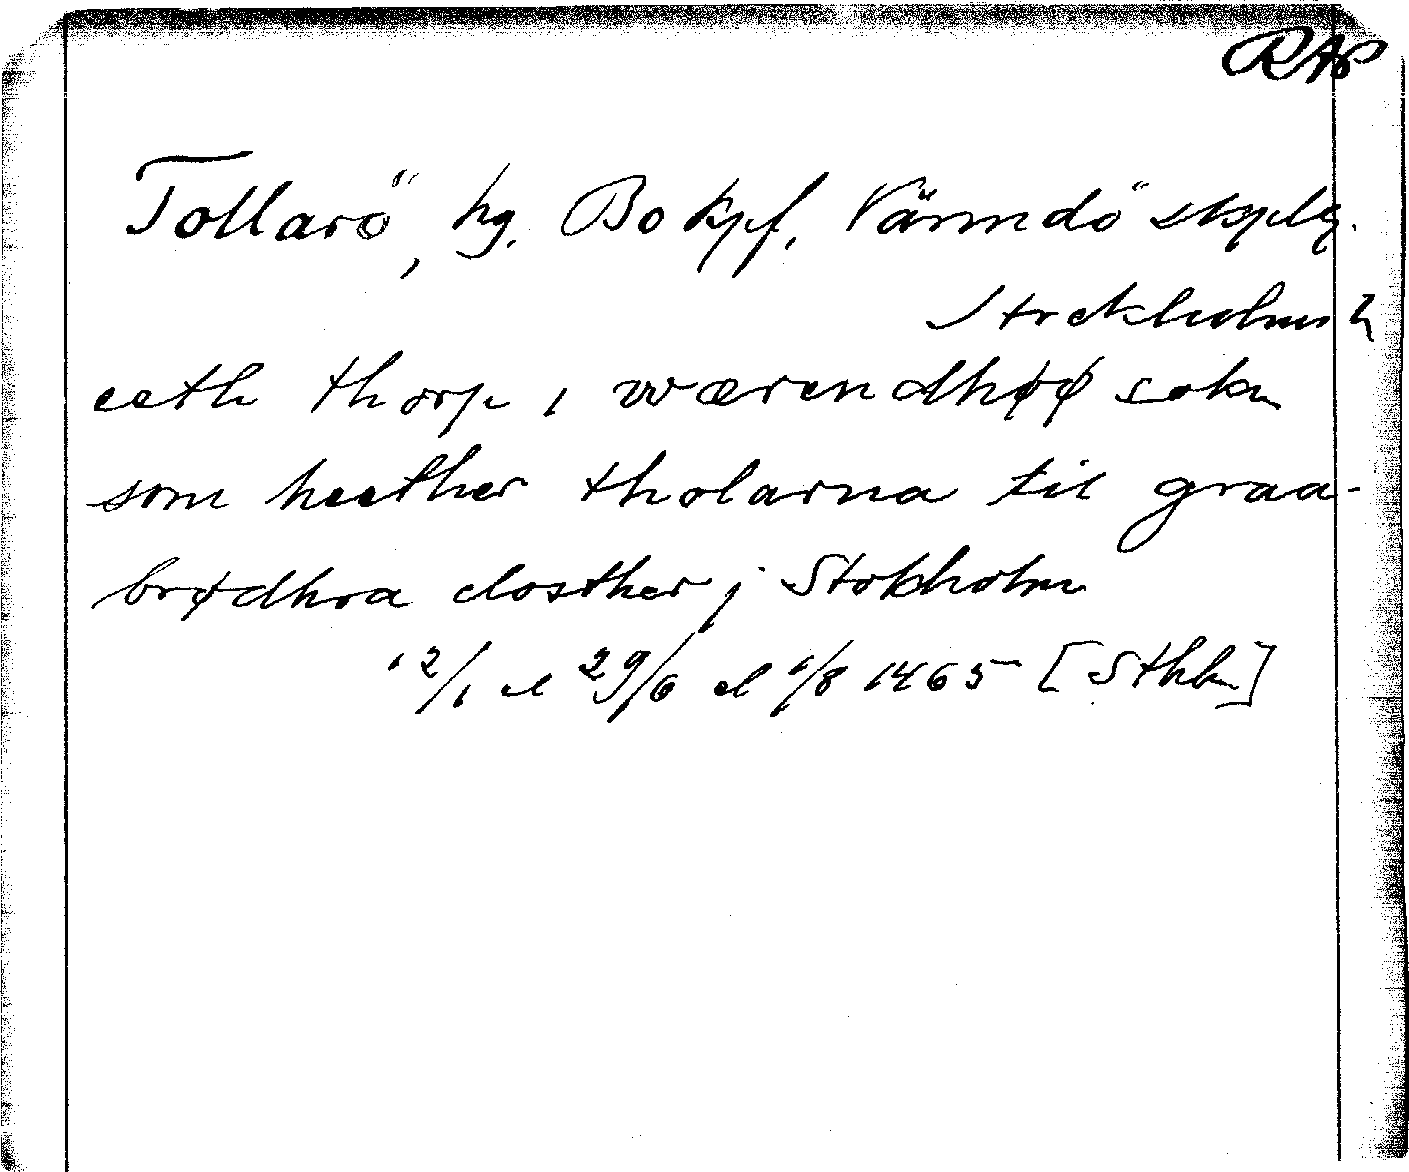 RAP
Tollarö, hg. Bo kpf, Värmdö skplg.
Stockholms l
eeth thorp i wærendhøø sokn
som heether tholarna til graa-
brødhra closther j Stokholm
12/1 el 29/6 el 1/8 1465 [Sthlm]